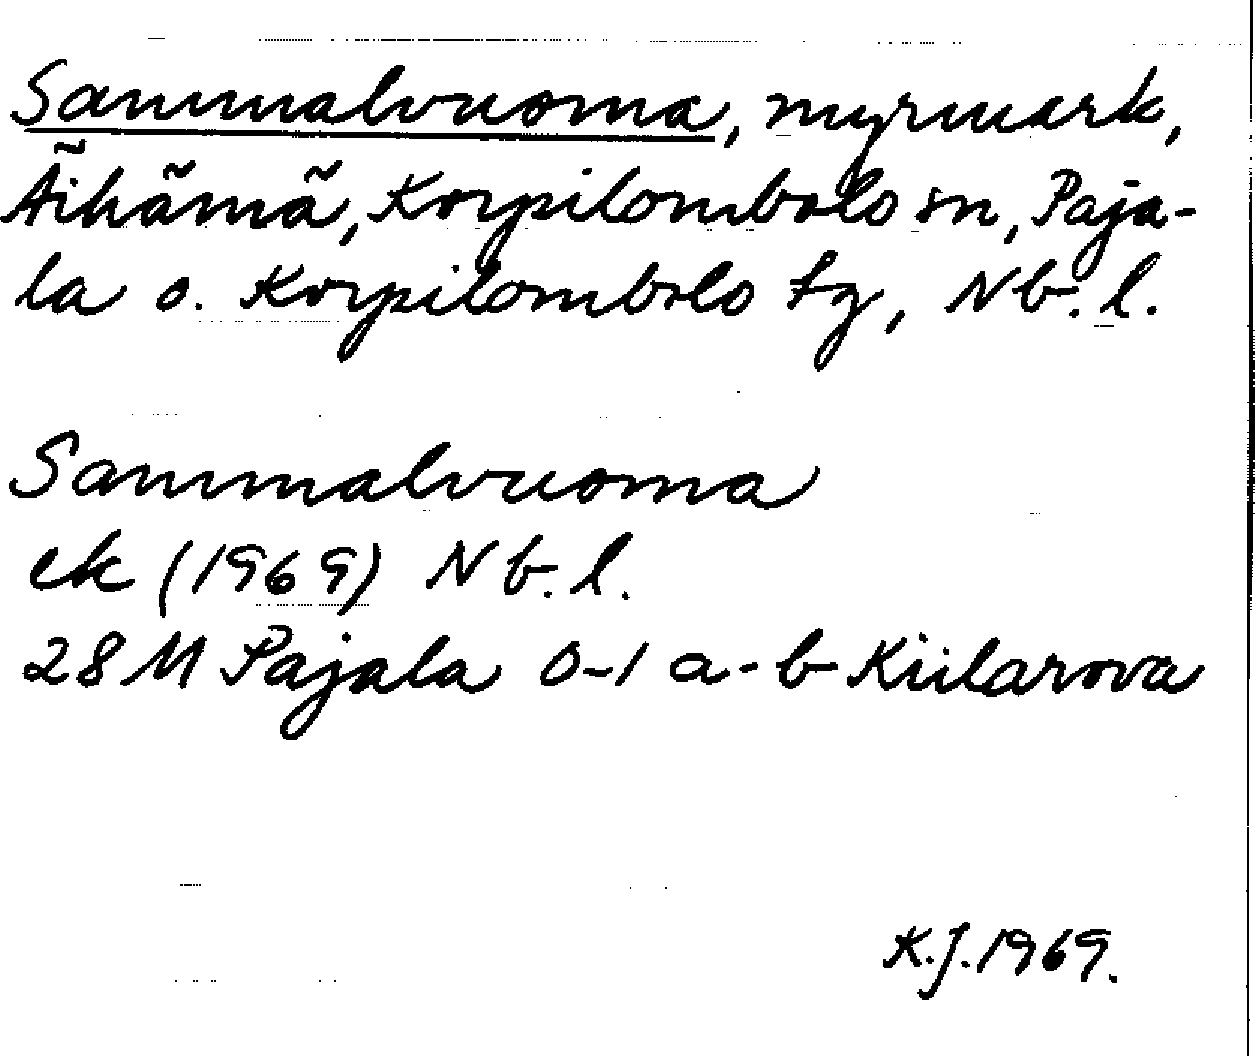 Sammalvuoma, myrmark,
Äihämä, Korpilombolo sn, Paja-
la o. Korpilombolo tg, Nb. l.
Sammalvuoma
ek (1969) Nb. l.
28 M Pajala 0-1 a-b Kiilarova
K.J. 1969.